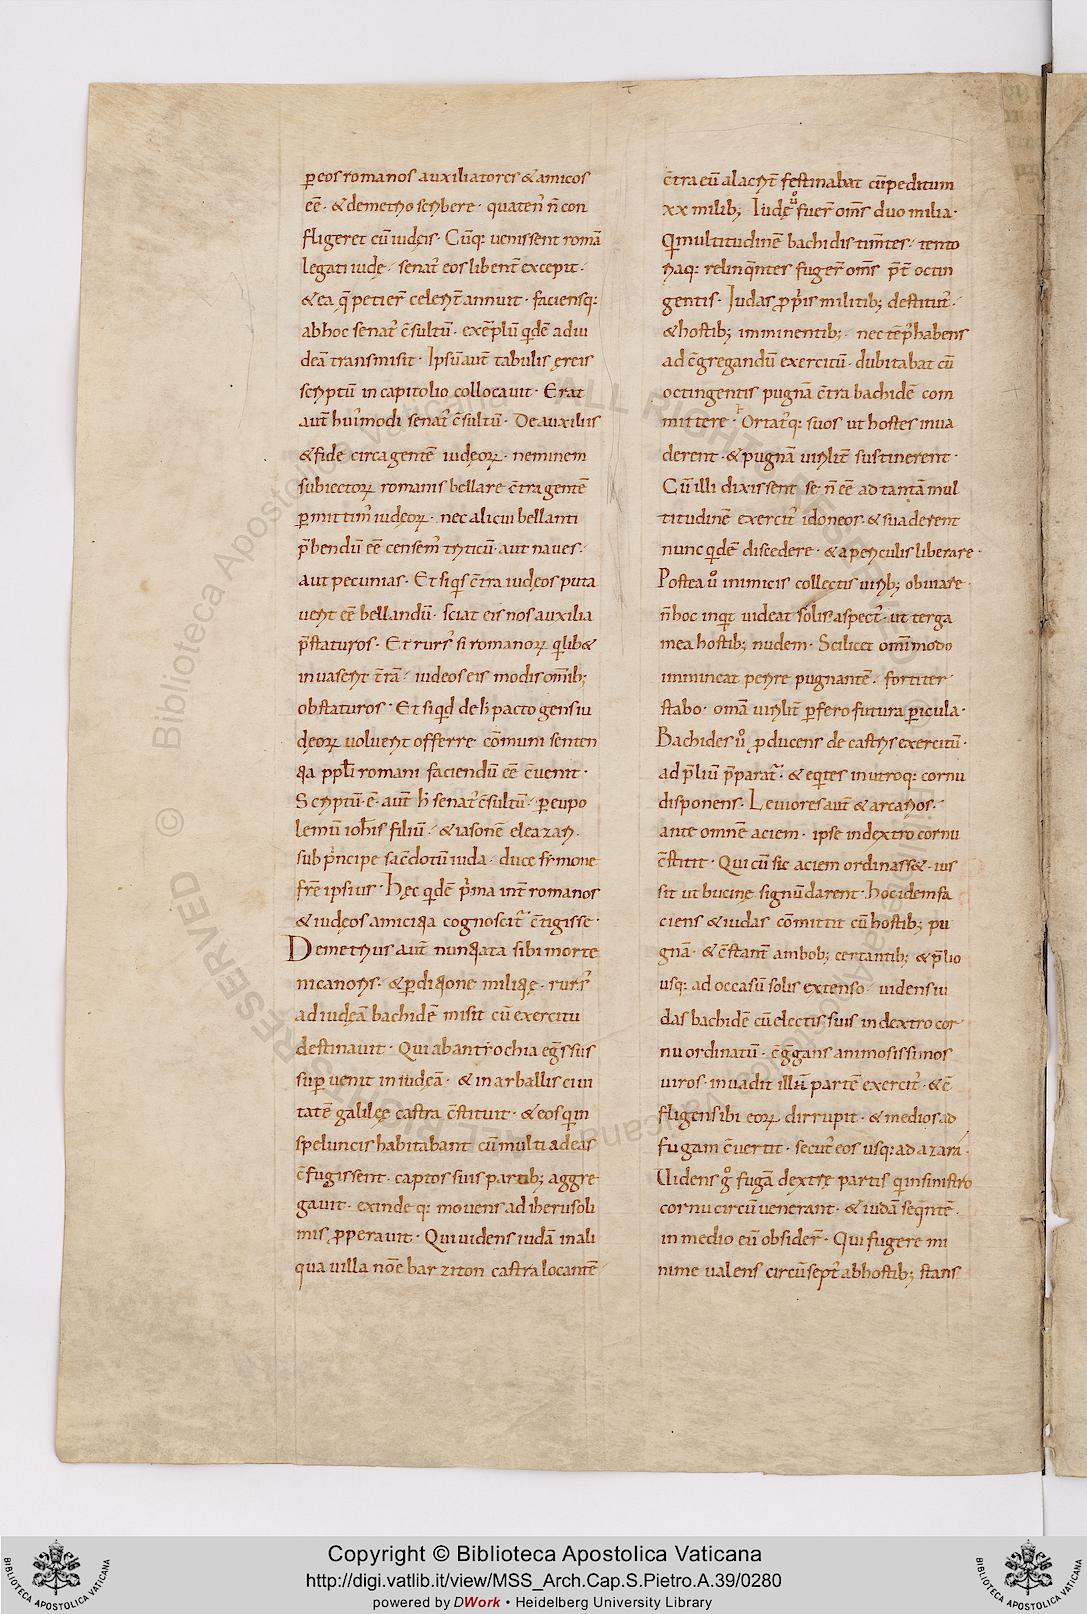 ꝑ eos romanos auxiliatores & amicos
eē · & demetrio scribere · quaten᷒ n̄ con
fligeret cū iudęis · Cūq: uenissent romā
legati iudę · senat᷒ eos libent̄ excepit ·
& ea q̄ petier̄ celerit̄ annuit · faciensq:
ab hoc senat᷒ c̄sultū · exēplū qdē ad iu
deā transmisit · Ipsū aut̄ tabulis ęreis
scriptū in capitolio collocauit · Erat
aut̄ hui᷒modi senat᷒ c̄sultū · De auxiliis
& fide circa gentē iudęoꝝ · neminem
subiectoꝝ romanis bellare c̄tra gentē
ꝑmittim᷒ iudęoꝝ · nec alicui bellanti
p̄bendū eē censem᷒ triticū · aut naues ·
aut pecunias · Et siqs c̄tra iudęos puta
uerit eē bellandū · sciat eis nos auxilia
p̄staturos · Et rurs᷒ si romanoꝝ qlib&
inuaserit t̄rā · iudeos eis modis omīb;
obstaturos · Et siqd de h̄ pacto gens iu
dęoꝝ uoluerit offerre · cōmuni senten
tia ppl̄i romani faciendū eē c̄uenit ·
Scriptū · ē · aut̄ h̄ senat᷒ c̄sultū · ꝑ eupo
lemū ioh̄is filiū · & iasonē eleazari ·
sub p̄ncipe sac̄dotū iuda · duce symone
frē ipsius · Hęc qdē p̄ma int̄ romanos
& iudęos amicitia cognoscit᷒ c̄tigisse ·
Demetrius aut̄ nuntiata sibi morte
nicanoris · & ꝑditione militię · rurs᷒
ad iudęā bachidē misit cū exercitu
destinauit · Qui ab antiochia eḡssus
suꝑuenit in iudęā · & in arballis ciui
tatē galilęe castra c̄stituit · & eos qui in
speluncis habitabant cū multi ad eas
c̄fugissent · captos suis partib; aggre
gauit · exinde q: mouens ad iherusoli
mis ꝓperauit · Qui uidens iudā in ali
qua uilla noīe barziton castra locantē
c̄tra eū alacrit̄ festinabat cū peditum
xx milib; Iudę ů fuer̄ om̄s duo milia ·
Qui multitudinē bachidis tim̄tes · tento
riaq: relinq̄ntes fuger̄ om̄s p̄t̄ octin
gentis · Iudas ꝓp̄is militib; destitut᷒ ·
& hostib; imminentib; · nec tēp᷒ habens
ad c̄gregandū exercitū · dubitabat cū
octingentis pugnā c̄tra bachidē com
mittere · Ortat᷒q: suos ut hostes inua
derent · & pugnā uirilit̄ sustinerent ·
Cū illi dixissent se n̄ eē ad tantā mul
titudinē exercit᷒ idoneos · & suaderent
nunc qdē discedere · & a periculis liberare ·
Postea ů inimicis collectis uirib; obuiare ·
n̄ hoc inqt uideat solis aspect᷒ · ut terga
mea hostib; nudem · Scilicet omīmodo
immineat perire pugnantē · fortiter
stabo · omā uirilit̄ ꝑfero futura ꝑicula ·
Bachides ů ꝓducens de castris exercitū ·
ad p̄liū p̄parat᷒ · & eq̄tes in utroq: cornu
disponens · Leuiores aut̄ & arcarios ·
ante omnē aciem · ipse in dextro cornu
c̄stitit · Qui cū sic aciem ordinass& · ius
sit ut bucinę signū darent · Hoc idem fa
ciens & iudas cōmittit cū hostib; pu
gnā · & c̄stant̄ ambob; certantib; & p̄lio
usq: ad occasū solis extenso · uidens iu
das bachidē cū electis suis in dextro cor
nu ordinatū · c̄ḡgans animosissimos
uiros · inuadit illū partē exercit᷒ · & c̄
fligens ibi eoꝝ dirrupit · & medios ad
fugam c̄uertit · secut᷒ eos usq: ad azarā ·
Uidens g̊ fugā dextrę partis qui in sinistro
cornu circū uenerant · & iudā seq̄ntē ·
in medio eū obsider̄ · Qui fugere mi
nime ualens circūsept᷒ ab hostib; stans
Copyright © Biblioteca Apostolica Vaticana
http://digi.vatlib.it/view/MSS_Arch.Cap.S.Pietro.A.39/0280
powered by DWork • Heidelberg University Library